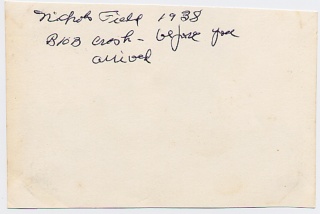 Nichols Field 1938
B10B crash - before you
arrived